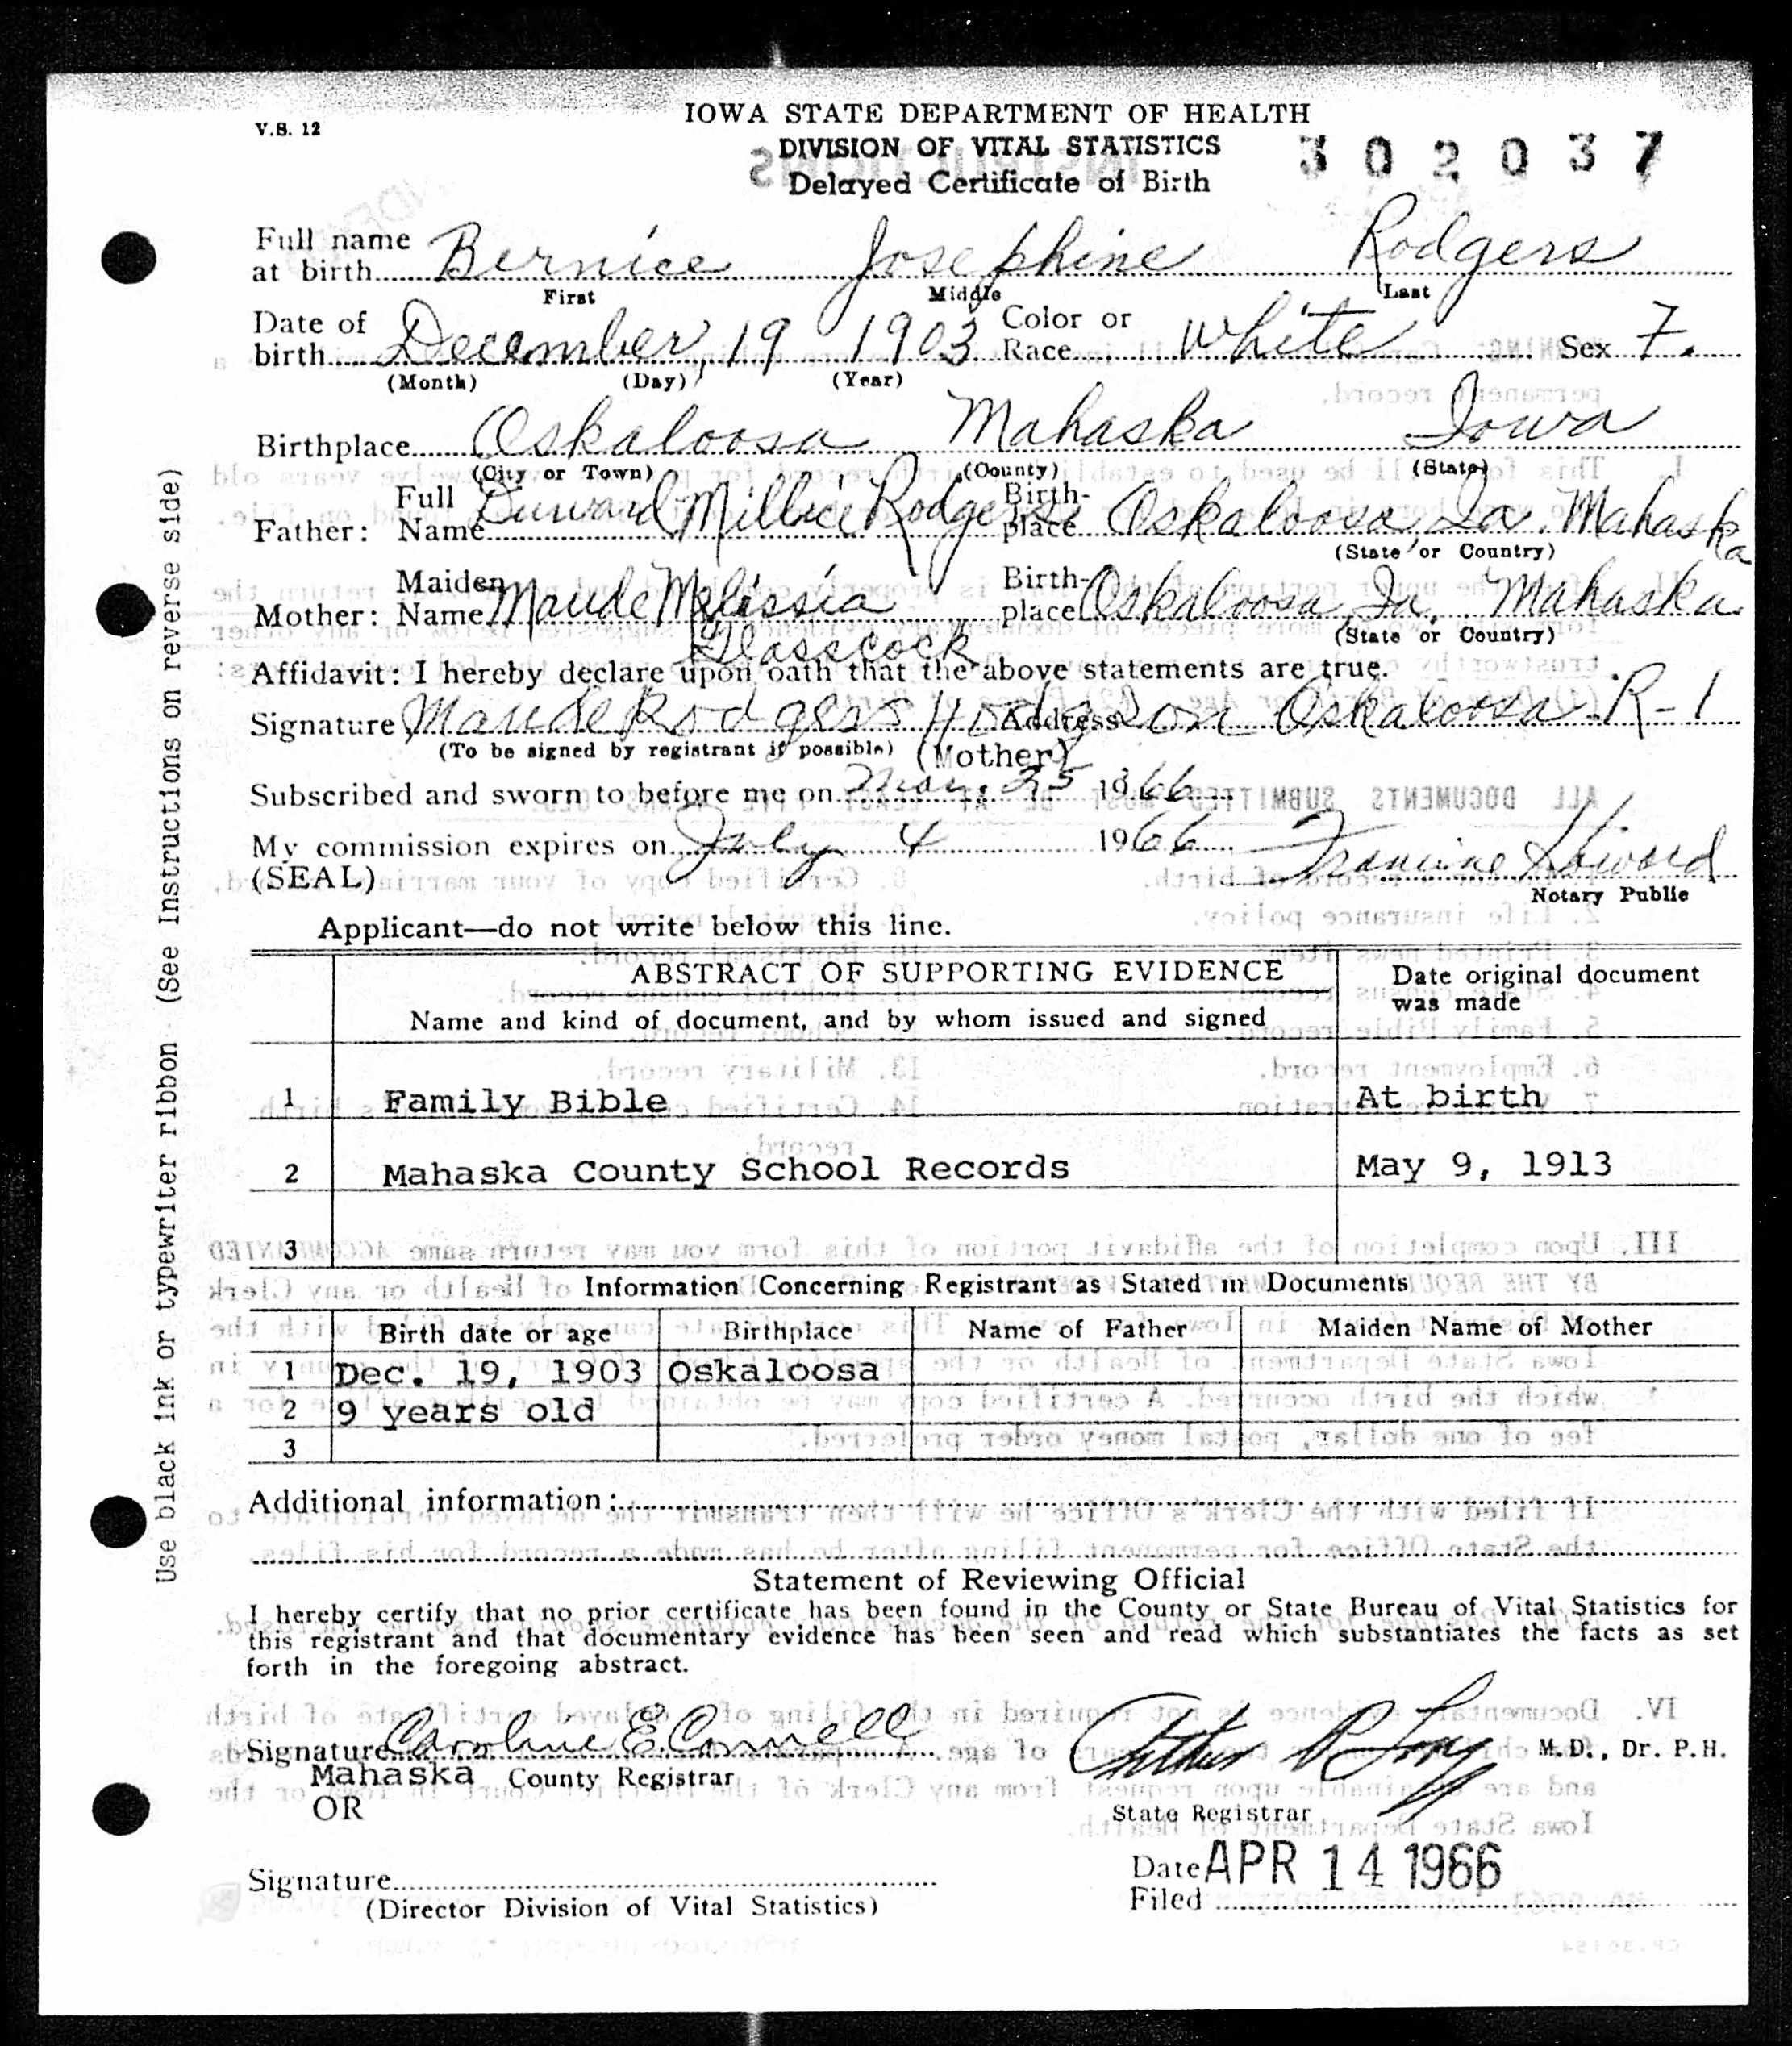 V.S. 12
IOWA STATE DEPARTMENT OF HEALTH
DIVISION OF VITAL STATISTICS
302037
Delayed Certificate of Birth
Full name at birth Bernice Josephine Rodgers
First Middle Last
Date of birth December, 19 1903 Color or Race White Sex F.
(Month) (Day) (Year)
Birthplace Oskaloosa Mahaska Iowa
(City or Town) (County) (State)
Father: Full Name Durward Millice Rodgers Birth-place Oskaloosa, Ia. Mahaska
(State or Country)
Mother: Maiden Name Maude Melissia Glasscock Birth-place Oskaloosa, Ia, Mahaska
(State or Country)
Affidavit: I hereby declare upon oath that the above statements are true.
Signature Maude Rodgers Hodgson Address Oskaloosa R-1
(To be signed by registrant if possible) (Mother)
Subscribed and sworn to before me on Mar. 25 1966
My commission expires on July 4 1966 Francine Howard
(SEAL)
Notary Public
Applicant—do not write below this line.
ABSTRACT OF SUPPORTING EVIDENCE
Name and kind of document, and by whom issued and signed
Date original document was made
1 Family Bible At birth
2 Mahaska County School Records May 9, 1913
3
Information Concerning Registrant as Stated in Documents
Birth date or age Birthplace Name of Father Maiden Name of Mother
1 Dec. 19, 1903 Oskaloosa
2 9 years old
3
Additional information:
Statement of Reviewing Official
I hereby certify that no prior certificate has been found in the County or State Bureau of Vital Statistics for
this registrant and that documentary evidence has been seen and read which substantiates the facts as set
forth in the foregoing abstract.
Signature Caroline E. Connell M.D., Dr. P.H.
Mahaska County Registrar
OR
State Registrar
Signature
Date Filed APR 14 1966
(Director Division of Vital Statistics)
Use black ink or typewriter ribbon (See Instructions on reverse side)